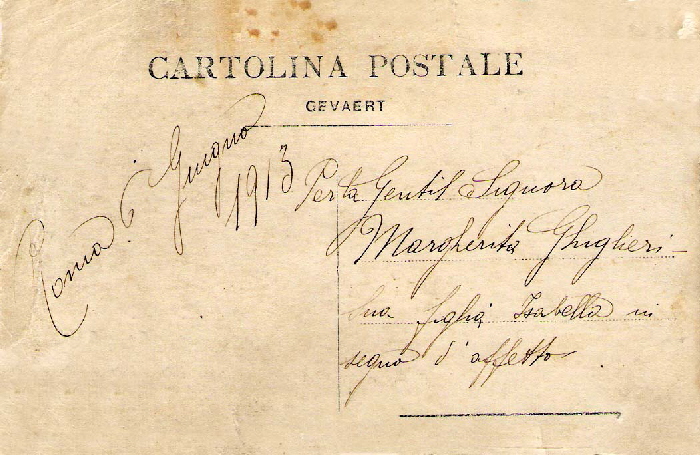 CARTOLINA POSTALE
GEVAERT
Roma 6 Giugno
1913
Per la Gentil Signora
Margherita Ghigheri
Sua figlia Isabella in
segno d'affetto